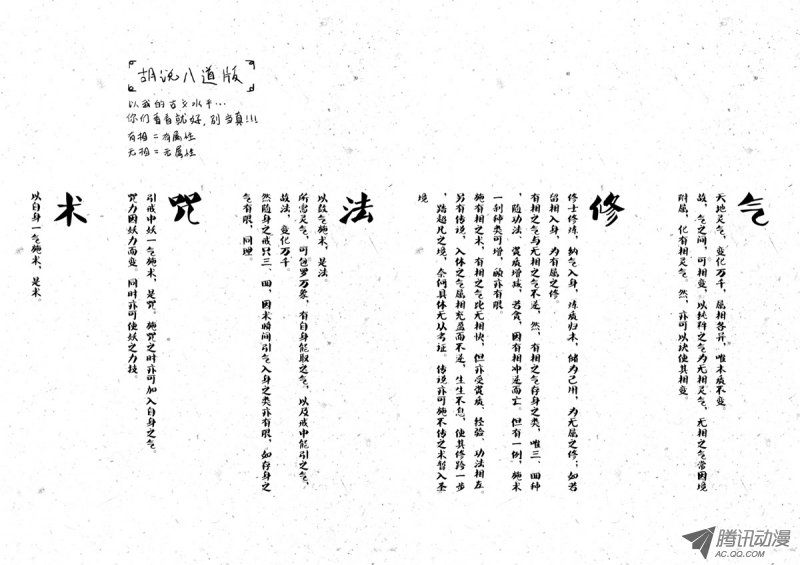 胡说八道版
以我的古文水平…
你们看看就好，别当真!!!
有相＝有属性
无相＝无属性
气
天地灵气，变化万千，属相各异，唯本质不变。
故，气之间，可相变，以纯粹之气为无相灵气，无相之气常因境
附属，化有相灵气。然，亦可以诀使其相变。
修
修士修炼，纳气入身，炼质归本，储为己用，为无属之修；如若
留相入身，为有属之修。
有相之气与无相之气不逆，然，有相之气存身之类，唯三、四种
，随功法，资质增减，若贪，因有相冲逆而亡。但有一例，施术
一刹种类可增，頋亦有限。
施有相之术，有相之气比无相快，但亦受资质、经验、功法相左。
另有传说，入体之气属相充盈而不逆，生生不息，使其修跨一步
，踏超凡之境，奈何具体无从考证。传说亦可施不传之术暂入圣
境
法
以故气施术，是法
所需灵气，可包罗万象，有自身能取之气，以及戒中能引之气，
故法，变化万千
然随身之戒只三、四，因术瞬间引气入身之类亦有限，如存身之
气有限，同理
咒
引戒中妖一气施术，是咒。施咒之时亦可加入自身之气。
咒力因妖力而变，同时亦可使妖之力技。
术
以自身一气施术，是术。
腾讯动漫
AC.QQ.COM